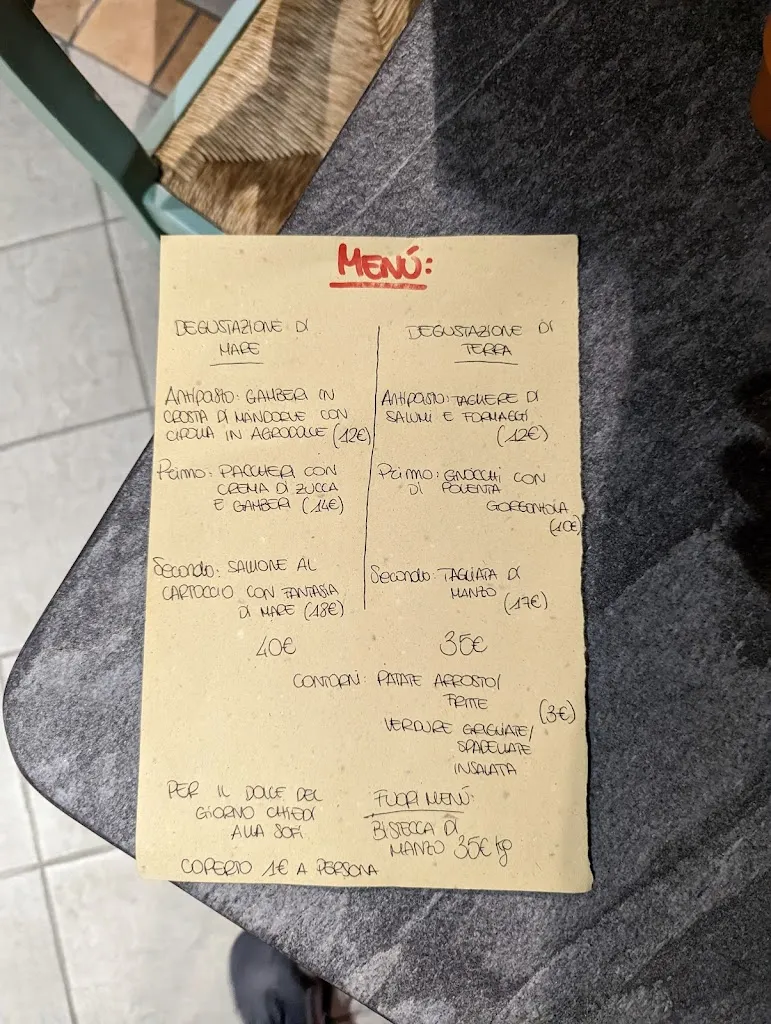 MENÚ:
DEGUSTAZIONE DI
MARE
ANTIPASTO: GAMBERI IN
CROSTA DI MANDORLE CON
CIPOLLA IN AGRODOLCE (12€)
PRIMO: PACCHERI CON
CREMA DI ZUCCA
E GAMBERI (14€)
SECONDO: SALMONE AL
CARTOCCIO CON FANTASIA
DI MARE (18€)
40€
DEGUSTAZIONE DI
TERRA
ANTIPASTO: TAGLIERE DI
SALUMI E FORMAGGI
(12€)
PRIMO: GNOCCHI CON
DI POLENTA
GORGONZOLA
(10€)
SECONDO: TAGLIATA DI
MANZO
(17€)
35€
CONTORNI: PATATE ARROSTO/
FRITTE
(3€)
VERDURE GRIGLIATE/
SPADELLATE
INSALATA
PER IL DOLCE DEL
GIORNO CHIEDI
ALLA SOFI
FUORI MENÚ:
BISTECCA DI
MANZO 35€ kg
COPERTO 1€ A PERSONA